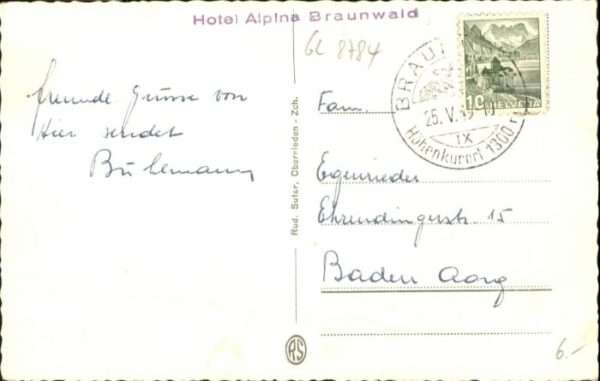 Hotel Alpina Braunwald
GL 8784
freunde Grüsse von
Hier sendet
Bühlmann
Rud. Suter, Oberrieden - Zch.
RS
BRAU
25. V. 10
IX
Höhenkurort 1300 m
10 HELVETIA
Fam.
Egenrieder
Ehrendingerstr. 15
Baden Aarg
6.-